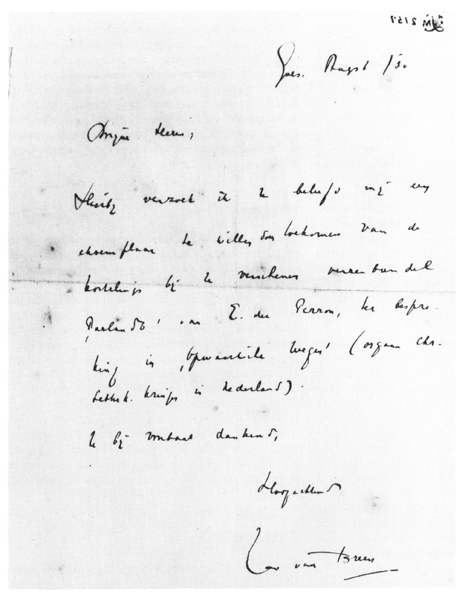 Goes. August '30
Mijne Heeren,
Hierbij verzoek ik U beleefd mij een
exemplaar te willen doen toekomen van de
kortelings bij U verschenen verzenbundel
'Parlando' van E. du Perron, ter bespre-
king in 'Opwaartsche Wegen' (orgaan chr.
letterk. kringen in Nederland).
U bij voorbaat dankend,
Hoogachtend
van Breen